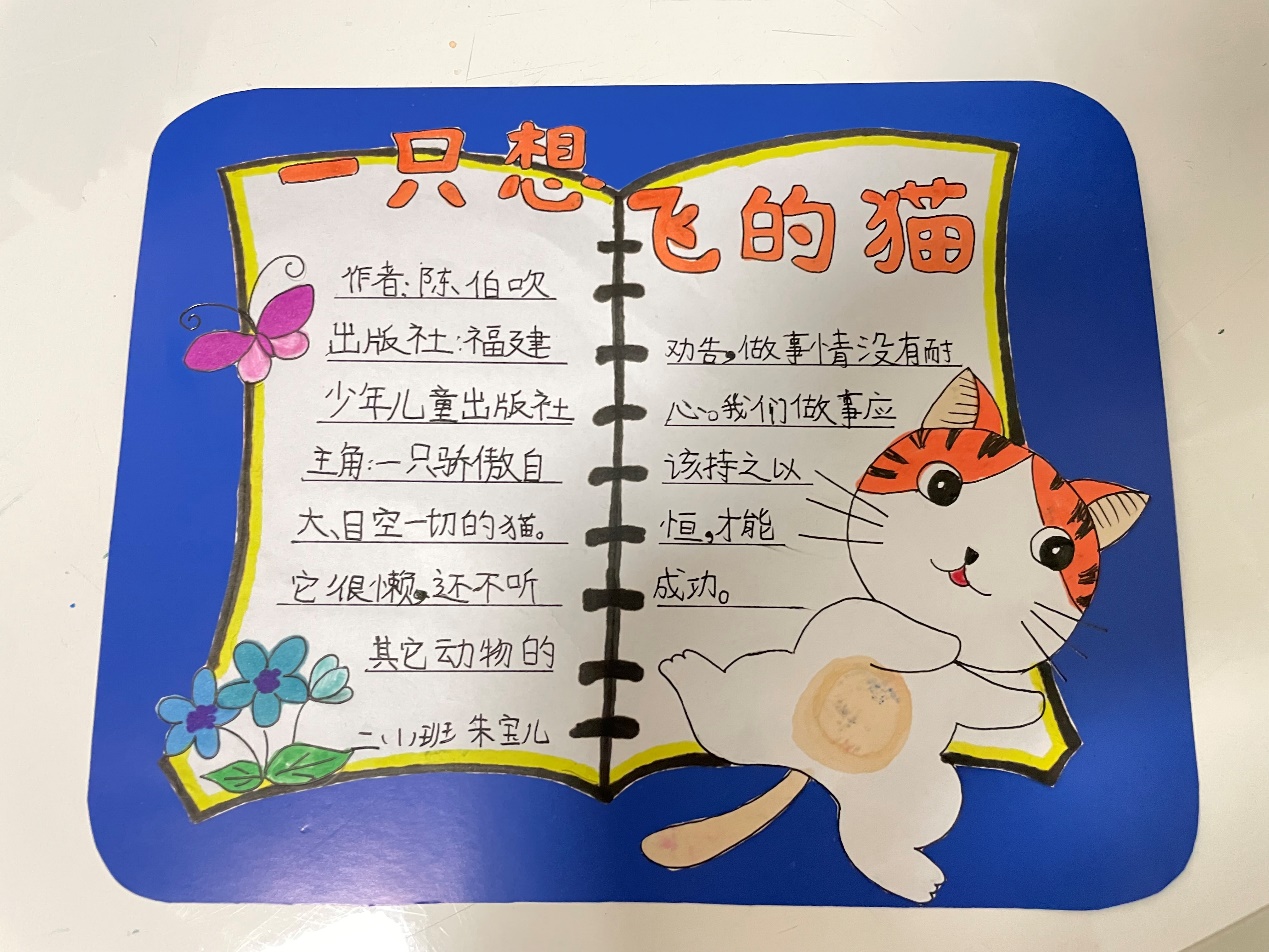 一只想飞的猫
作者:陈伯吹
出版社:福建
少年儿童出版社
主角:一只骄傲自
大、目空一切的猫。
它很懒,还不听
其它动物的
二(1)班 朱宝儿
劝告,做事情没有耐
心。我们做事应
该持之以
恒,才能
成功。